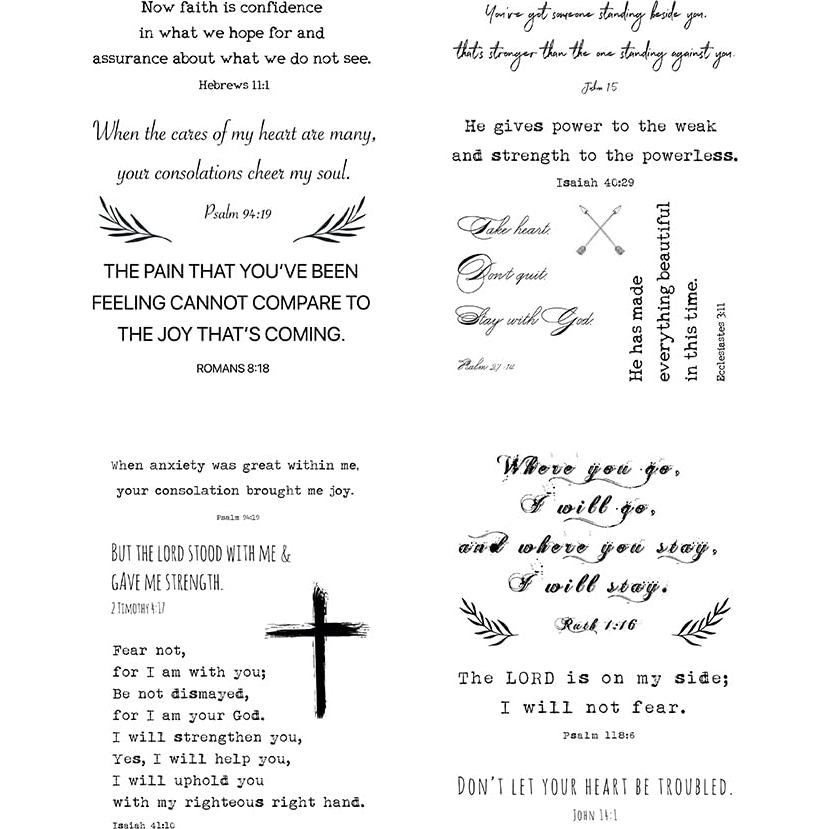 Now faith is confidence
in what we hope for and
assurance about what we do not see.
Hebrews 11:1
When the cares of my heart are many,
your consolations cheer my soul.
Psalm 94:19
THE PAIN THAT YOU'VE BEEN
FEELING CANNOT COMPARE TO
THE JOY THAT'S COMING.
ROMANS 8:18
You've got someone standing beside you,
that's stronger than the one standing against you.
John 15
He gives power to the weak
and strength to the powerless.
Isaiah 40:29
Take heart.
Don't quit.
Stay with God.
Psalm 27:14
He has made
everything beautiful
in this time.
Ecclesiastes 3:11
When anxiety was great within me,
your consolation brought me joy.
Psalm 94:19
BUT THE LORD STOOD WITH ME &
GAVE ME STRENGTH.
2 TIMOTHY 4:17
Fear not,
for I am with you;
Be not dismayed,
for I am your God.
I will strengthen you,
Yes, I will help you,
I will uphold you
with my righteous right hand.
Isaiah 41:10
Where you go,
I will go,
and where you stay,
I will stay.
Ruth 1:16
The LORD is on my side;
I will not fear.
Psalm 118:6
DON'T LET YOUR HEART BE TROUBLED.
JOHN 14:1